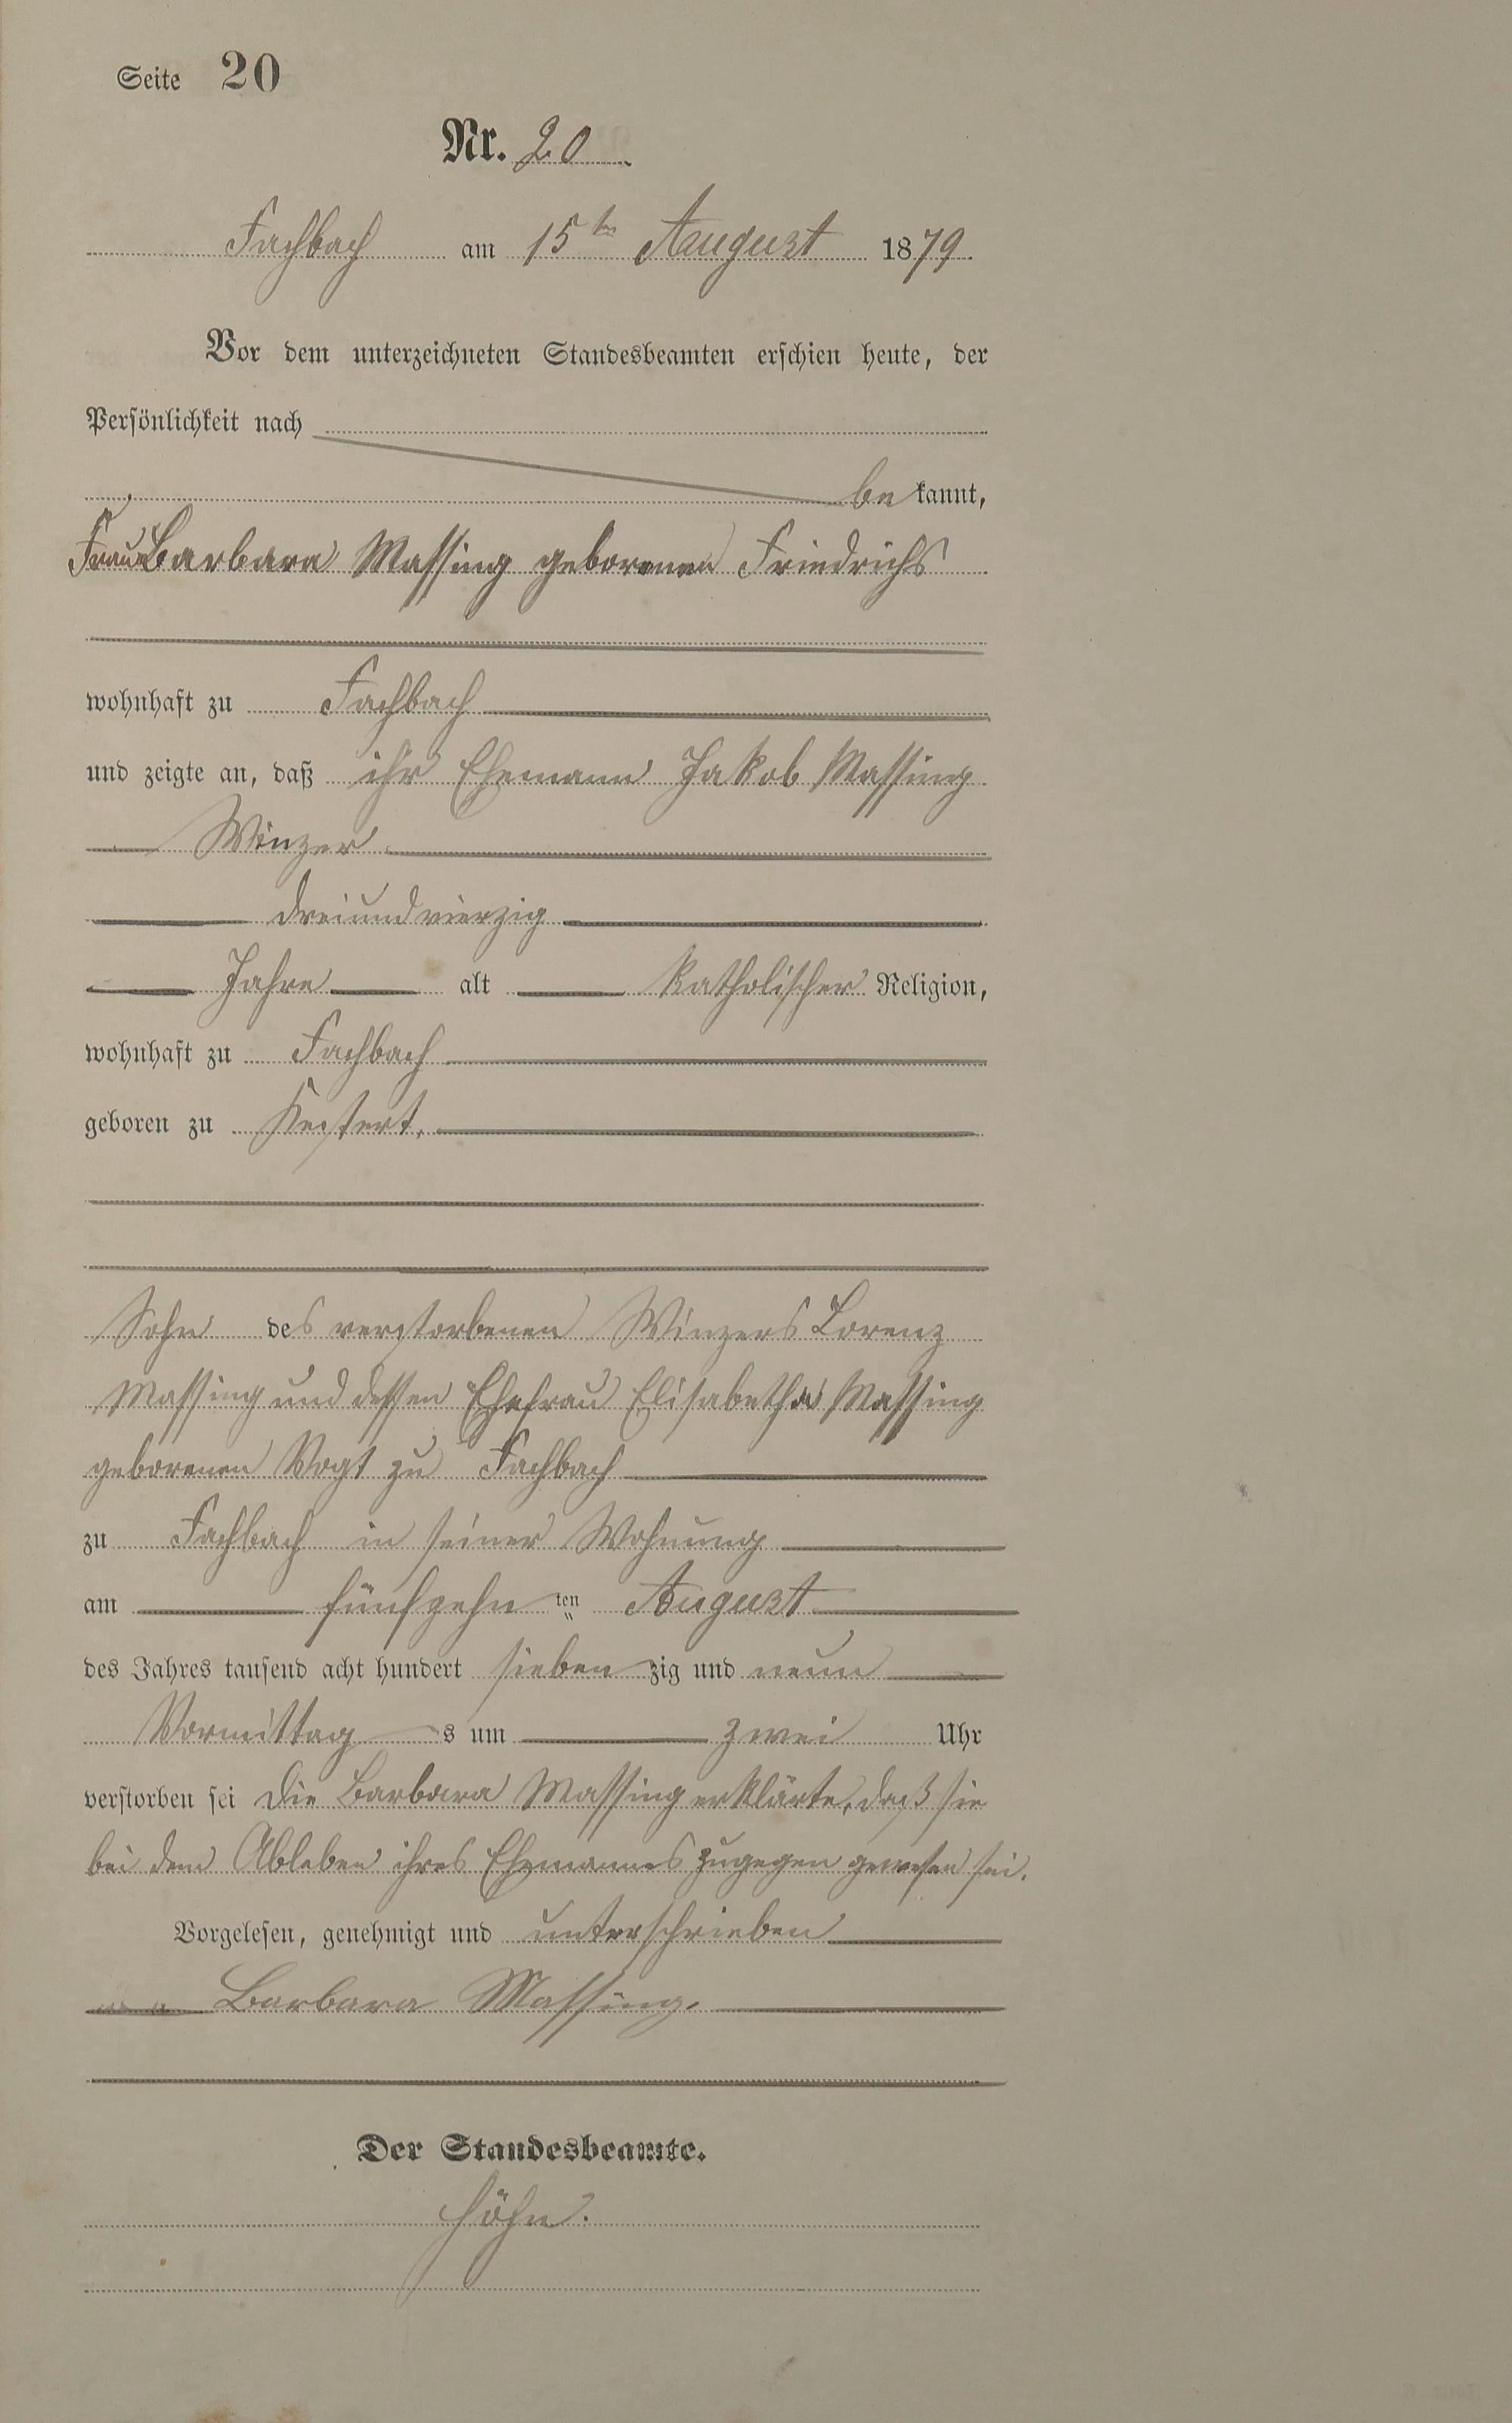 Seite 20
Nr. 20
Fachbach am 15ten August 1879.
Vor dem unterzeichneten Standesbeamten erschien heute, der
Persönlichkeit nach
be kannt,
Frau Barbara Massing geborenen Friedrichs
wohnhaft zu Fachbach
und zeigte an, daß ihr Ehemann Jakob Massing
Winzer
dreiundvierzig
Jahre alt katholischer Religion,
wohnhaft zu Fachbach
geboren zu Kestert.
Sohn des verstorbenen Winzers Lorenz
Massing und dessen Ehefrau Elisabetha Massing
geborenen Vogt zu Fachbach
zu Fachbach in seiner Wohnung
am fünfzehn ten August
des Jahres tausend acht hundert sieben zig und neun
Vormittag s um zwei Uhr
verstorben sei die Barbara Massing erklärte, daß sie
bei dem Ableben ihres Ehemannes zugegen gewesen sei.
Vorgelesen, genehmigt und unterschrieben
Barbara Massing.
Der Standesbeamte.
Höhn.